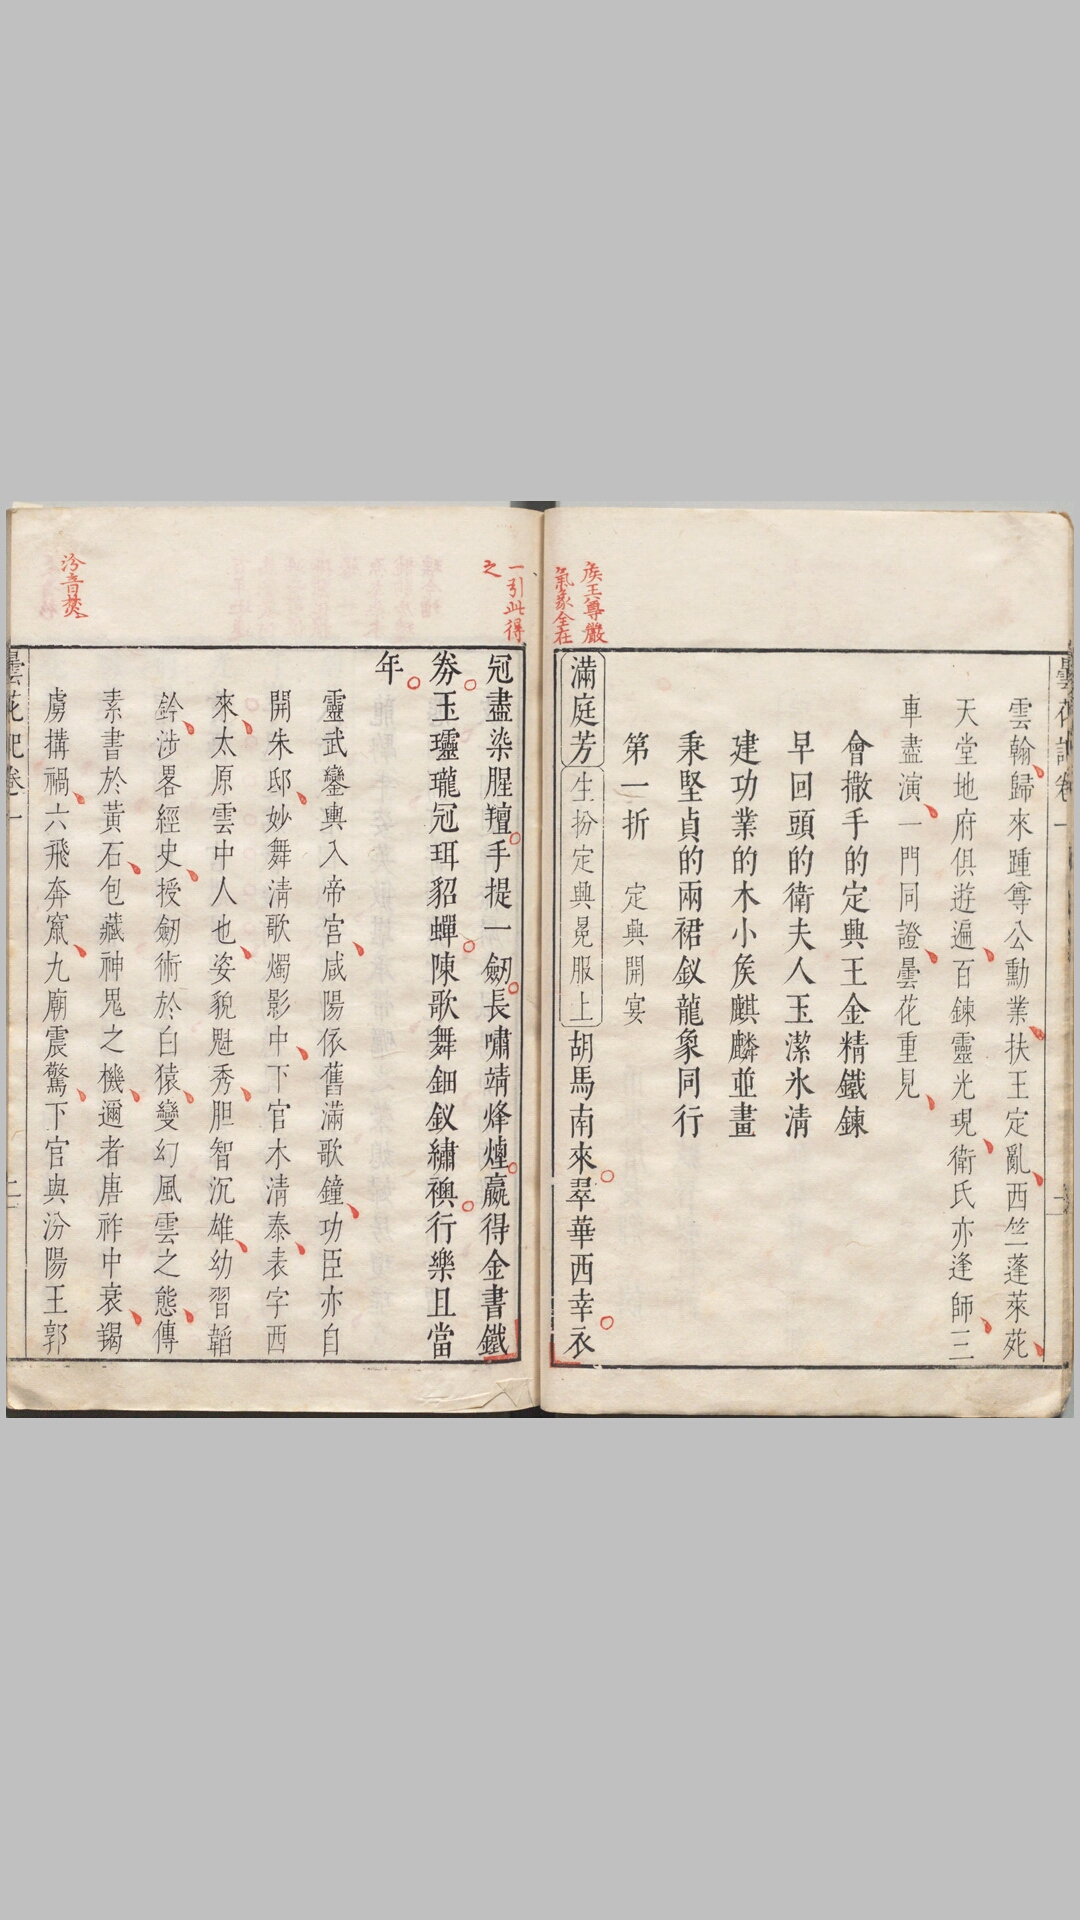 曇花記卷一
二
雲翰歸來踵尊公勳業扶王定亂西竺蓬萊死
天堂地府俱遊遍百鍊靈光現衛氏亦逢師三
車盡演一門同證曇花重見
會撒手的定興王金精鐵鍊
早回頭的衛夫人玉潔氷清
建功業的木小矦麒麟並畫
秉堅貞的兩裙釵龍象同行
第一折 定興開宴
矦王尊嚴
氣象全在
滿庭芳生扮定興冕服上胡馬南來翠華西幸衣
一引此得
之
冠盡染腥羶手提一劒長嘯靖烽煙嬴得金書鐵
券玉瓏瓏冠珥貂蟬陳歌舞鈿釵繡襖行樂且當
年
靈武鑾輿入帝宮咸陽依舊滿歌鐘功臣亦自
開朱邸妙舞清歌燭影中下官木清泰表字西
來太原雲中人也姿貌魁秀胆智沉雄幼習韜
鈐涉畧經史授劒術於白猿變幻風雲之態傳
素書於黃石包藏神鬼之機邇者唐祚中衰羯
汾音焚
虜搆禍六飛奔竄九廟震驚下官與汾陽王郭
曇花記卷一
二